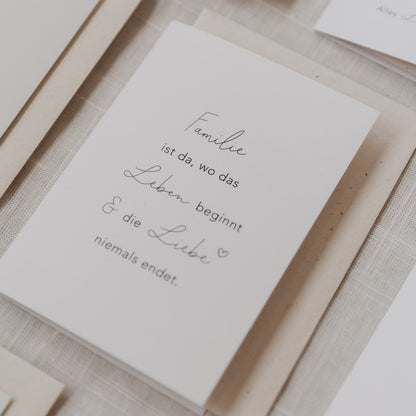 Alles
Familie
ist da, wo das
Leben beginnt
& die Liebe ♡
niemals endet.